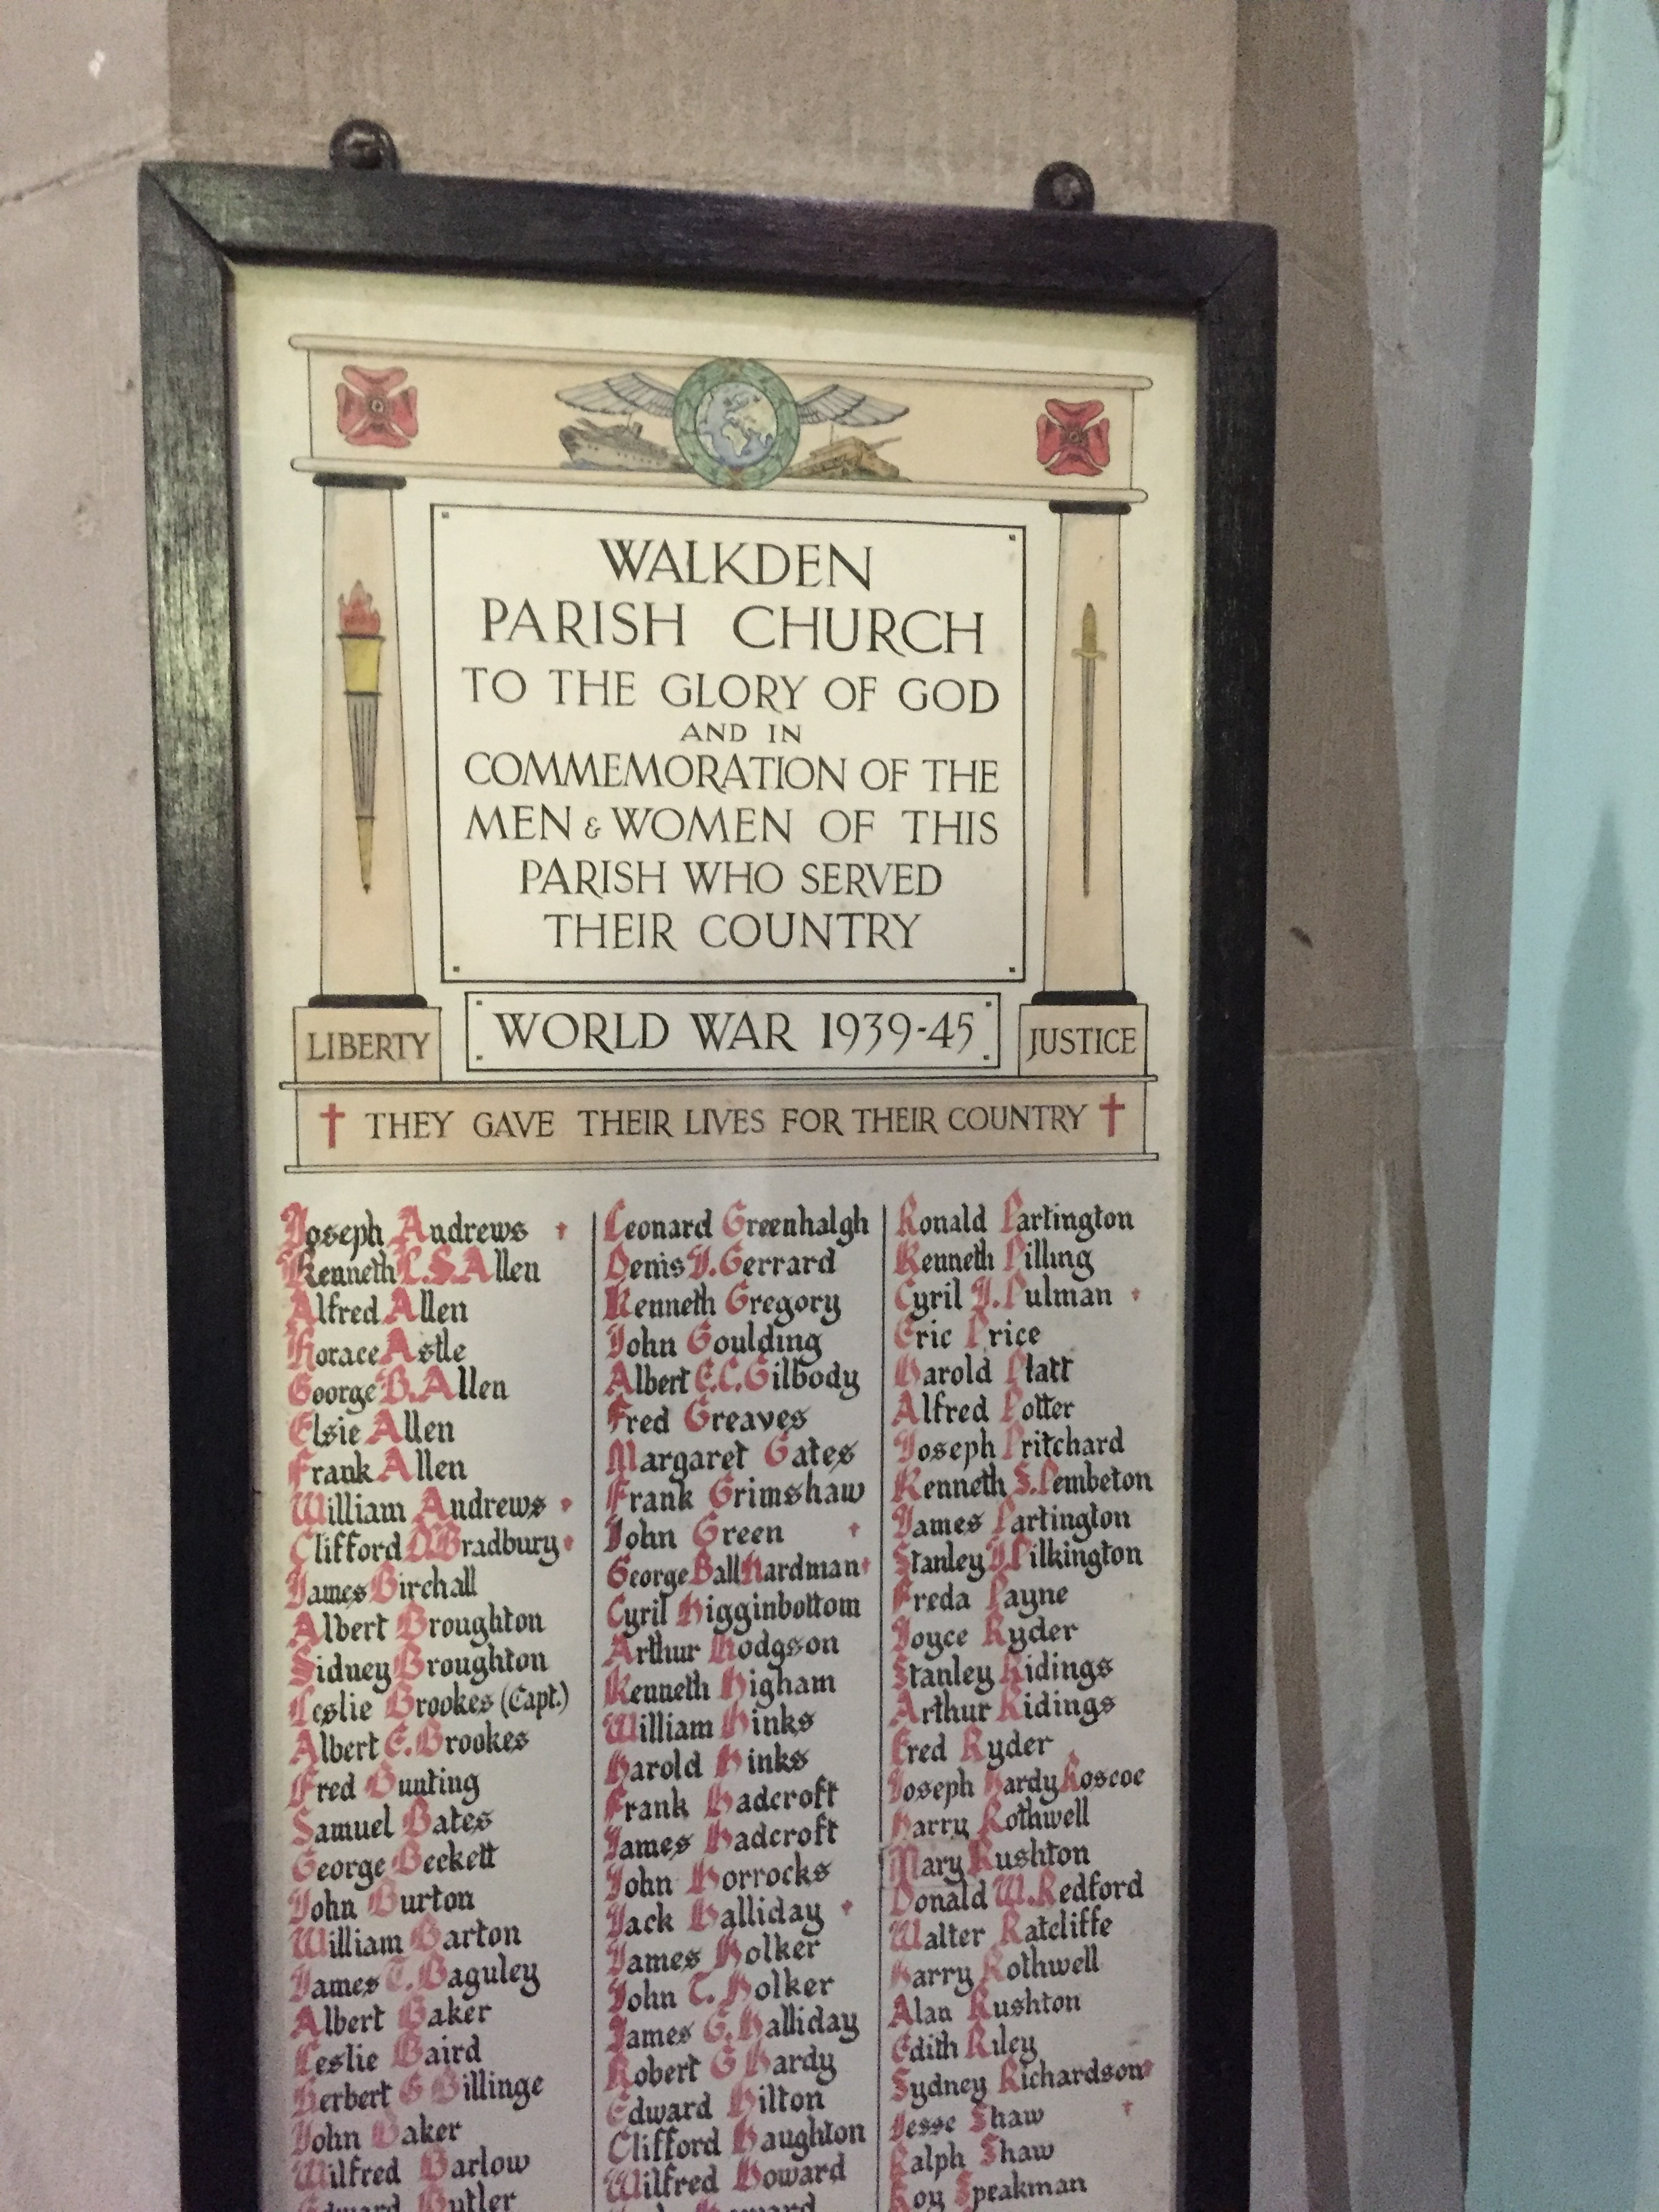 WALKDEN
PARISH CHURCH
TO THE GLORY OF GOD
AND IN
COMMEMORATION OF THE
MEN & WOMEN OF THIS
PARISH WHO SERVED
THEIR COUNTRY
LIBERTY
WORLD WAR 1939-45
JUSTICE
† THEY GAVE THEIR LIVES FOR THEIR COUNTRY †
Joseph Andrews †
Kenneth L.S. Allen
Alfred Allen
Horace Astle
George B. Allen
Elsie Allen
Frank Allen
William Andrews †
Clifford D. Bradbury †
James Birchall
Albert Broughton
Sidney Broughton
Leslie Brookes (Capt.)
Albert E. Brookes
Fred Bunting
Samuel Bates
George Beckett
John Burton
William Barton
James T. Baguley
Albert Baker
Leslie Baird
Herbert G Billinge
John Baker
Wilfred Barlow
Edward Butler
Leonard Greenhalgh
Denis J. Gerrard
Kenneth Gregory
John Goulding
Albert E.C. Gilbody
Fred Greaves
Margaret Gates
Frank Grimshaw
John Green †
George Ball Hardman †
Cyril Higginbottom
Arthur Hodgson
Kenneth Higham
William Hinks
Harold Hinks
Frank Hadcroft
James Hadcroft
John Horrocks
Jack Halliday †
James Holker
John T. Holker
James G. Halliday
Robert G Hardy
Edward Hilton
Clifford Haughton
Wilfred Howard
Howard
Ronald Partington
Kenneth Pilling
Cyril J. Pulman †
Eric Price
Harold Platt
Alfred Potter
Joseph Pritchard
Kenneth S. Pembeton
James Partington
Stanley J. Pilkington
Freda Payne
Joyce Ryder
Stanley Ridings
Arthur Ridings
Fred Ryder
Joseph Hardy Roscoe
Harry Rothwell
Mary Rushton
Donald W. Redford
Walter Ratcliffe
Harry Rothwell
Alan Rushton
Edith Riley
Sydney Richardson †
Jesse Shaw †
Ralph Shaw
Roy Speakman